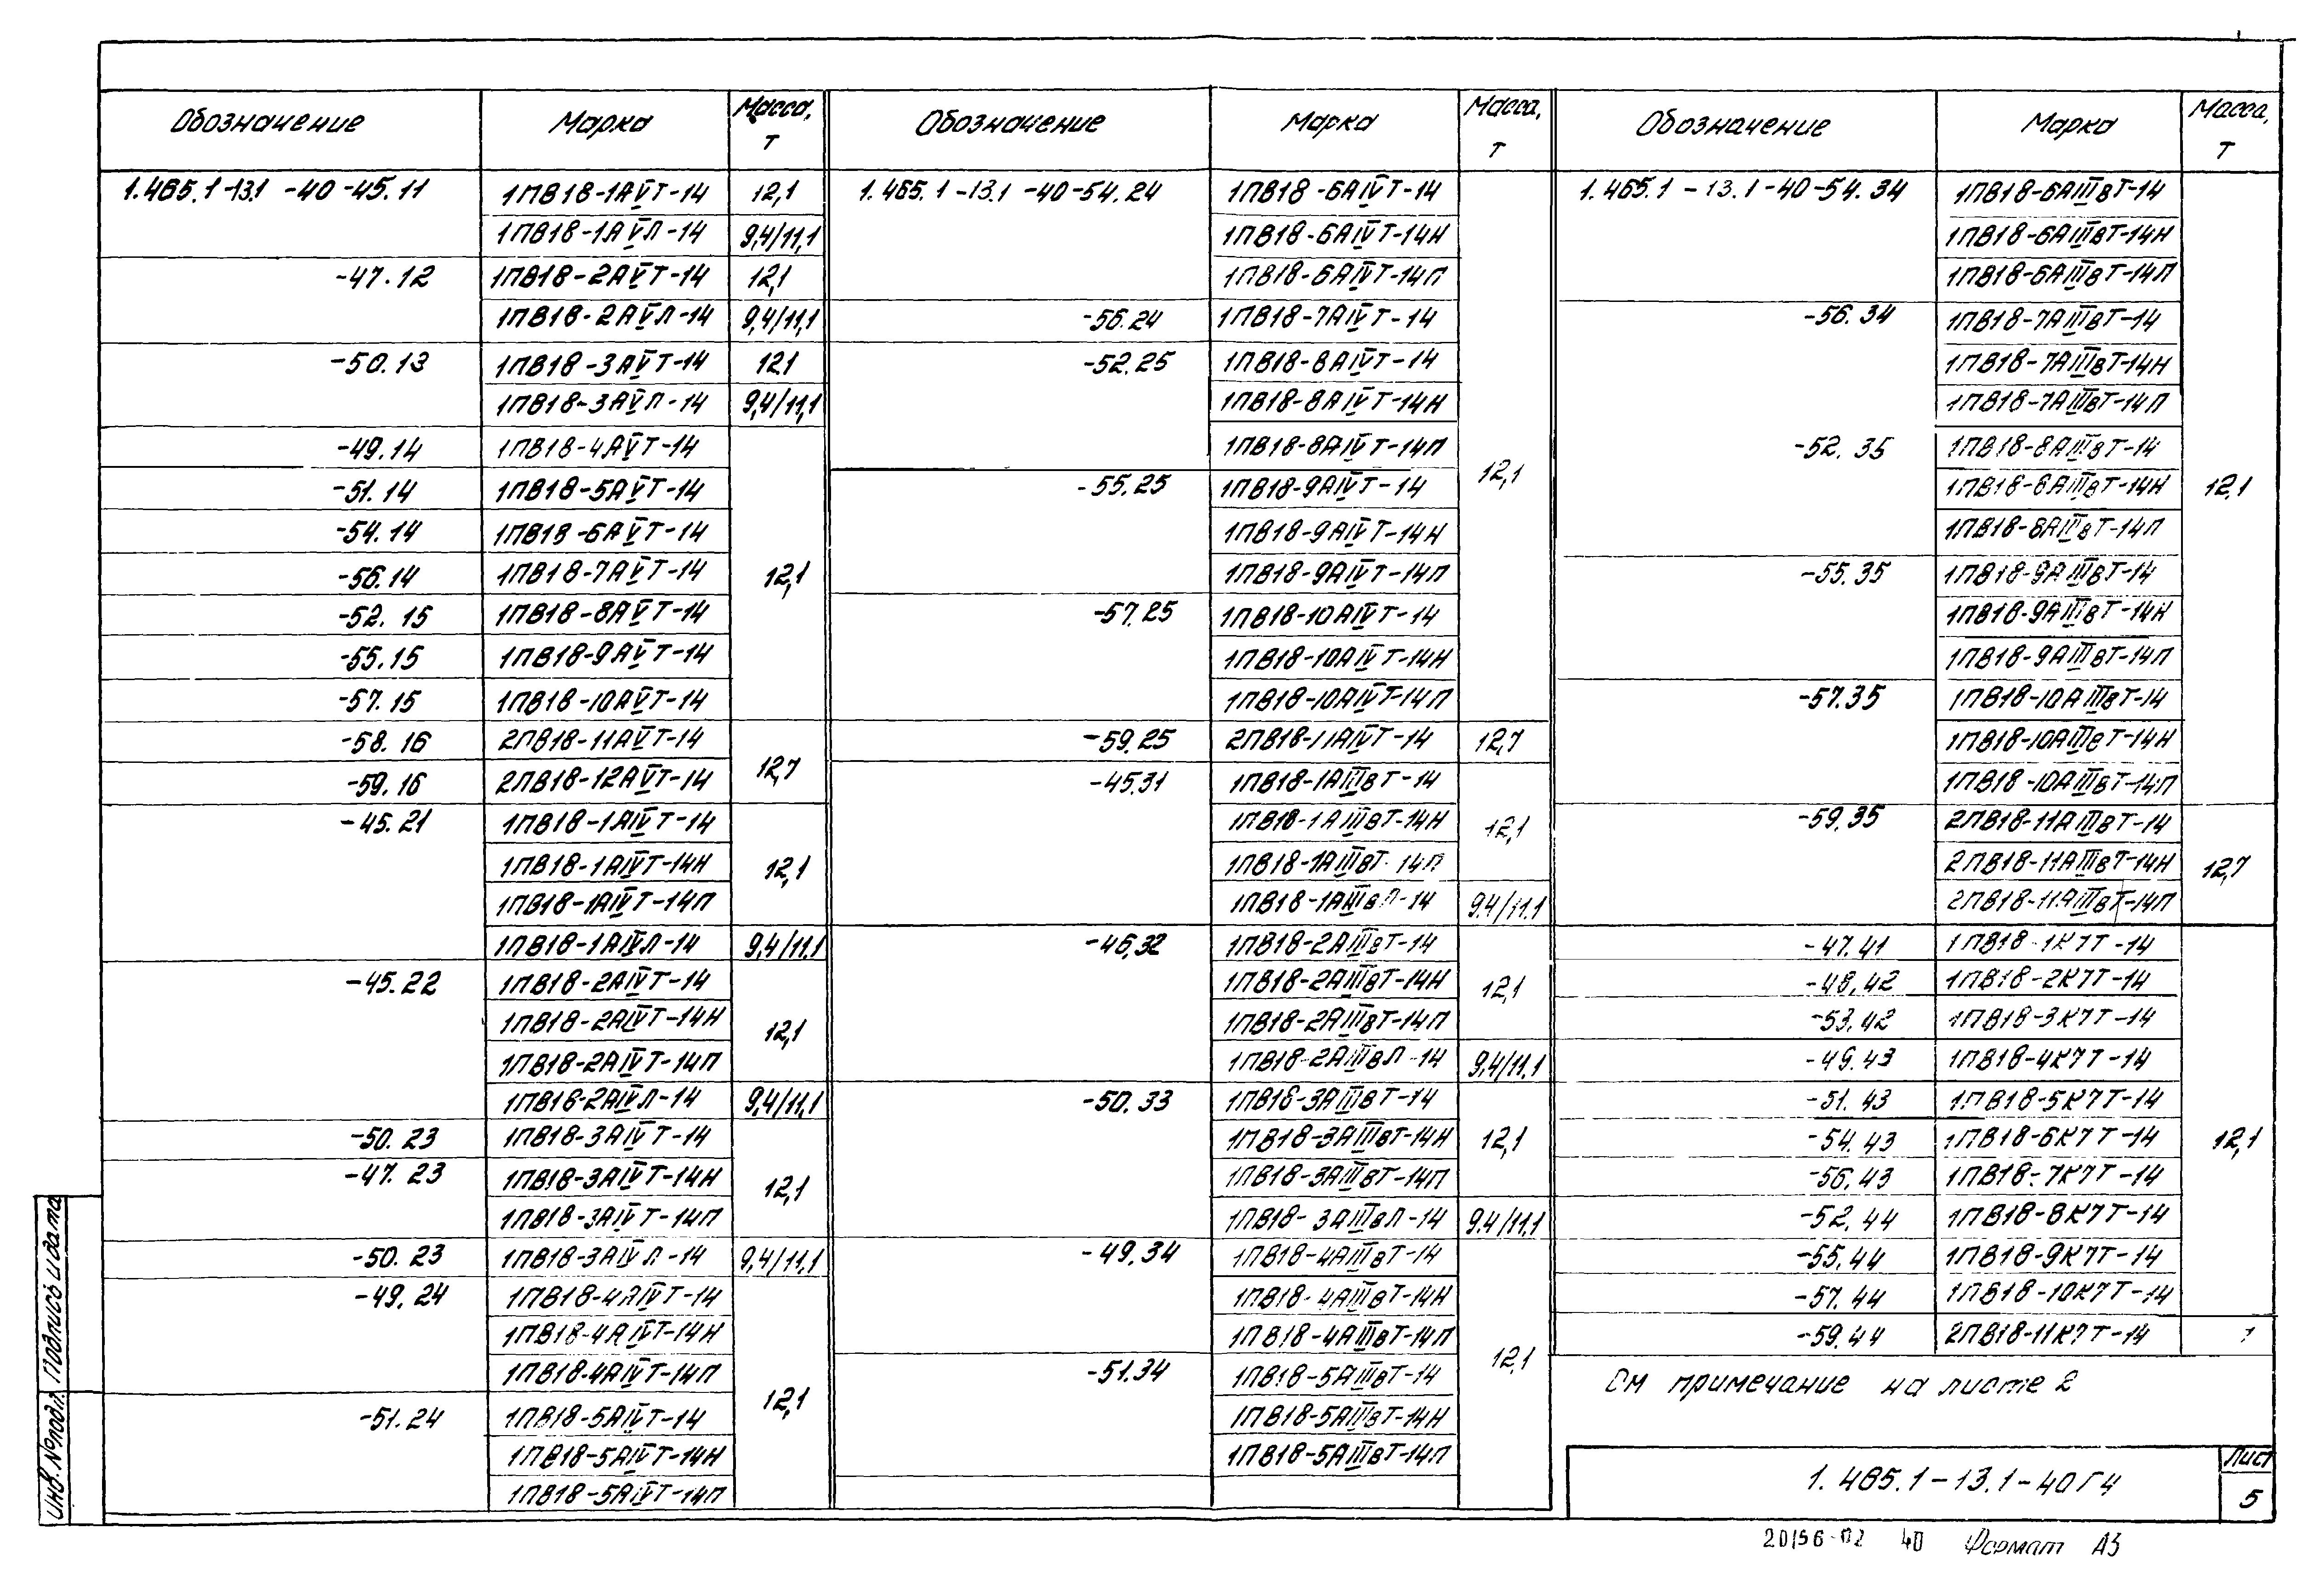 Обозначение Марка Масса, т
1.465.1-13.1-40-45.11 1ПВ18-1АVТ-14 12,1
1ПВ18-1АVЛ-14 9,4/11,1
-47.12 1ПВ18-2АVТ-14 12,1
1ПВ18-2АVЛ-14 9,4/11,1
-50.13 1ПВ18-3АVТ-14 12,1
1ПВ18-3АVЛ-14 9,4/11,1
-49.14 1ПВ18-4АVТ-14
-51.14 1ПВ18-5АVТ-14
-54.14 1ПВ18-6АVТ-14
-56.14 1ПВ18-7АVТ-14 12,1
-52.15 1ПВ18-8АVТ-14
-55.15 1ПВ18-9АVТ-14
-57.15 1ПВ18-10АVТ-14
-58.16 2ПВ18-11АVТ-14
12,7
-59.16 2ПВ18-12АVТ-14
-45.21 1ПВ18-1АIVТ-14
1ПВ18-1АIVТ-14Н 12,1
1ПВ18-1АIVТ-14П
1ПВ18-1АIVЛ-14 9,4/11,1
-45.22 1ПВ18-2АIVТ-14
1ПВ18-2АIVТ-14Н 12,1
1ПВ18-2АIVТ-14П
1ПВ18-2АIVЛ-14 9,4/11,1
-50.23 1ПВ18-3АIVТ-14
-47.23 1ПВ18-3АIVТ-14Н 12,1
1ПВ18-3АIVТ-14П
-50.23 1ПВ18-3АIVЛ-14 9,4/11,1
-49.24 1ПВ18-4АIVТ-14
1ПВ18-4АIVТ-14Н
1ПВ18-4АIVТ-14П
12,1
-51.24 1ПВ18-5АIVТ-14
1ПВ18-5АIVТ-14Н
1ПВ18-5АIVТ-14П
Обозначение Марка Масса, т
1.465.1-13.1-40-54.24 1ПВ18-6АIVТ-14
1ПВ18-6АIVТ-14Н
1ПВ18-6АIVТ-14П
-56.24 1ПВ18-7АIVТ-14
-52.25 1ПВ18-8АIVТ-14
1ПВ18-8АIVТ-14Н
1ПВ18-8АIVТ-14П
-55.25 1ПВ18-9АIVТ-14 12,1
1ПВ18-9АIVТ-14Н
1ПВ18-9АIVТ-14П
-57.25 1ПВ18-10АIVТ-14
1ПВ18-10АIVТ-14Н
1ПВ18-10АIVТ-14П
-59.25 2ПВ18-11АIVТ-14 12,7
-45.31 1ПВ18-1АIIIвТ-14
1ПВ18-1АIIIвТ-14Н 12,1
1ПВ18-1АIIIвТ-14П
1ПВ18-1АIIIвЛ-14 9.4/11.1
-46,32 1ПВ18-2АIIIвТ-14
1ПВ18-2АIIIвТ-14Н 12,1
1ПВ18-2АIIIвТ-14П
1ПВ18-2АIIIвЛ-14 9,4/11.1
-50.33 1ПВ18-3АIIIвТ-14
1ПВ18-3АIIIвТ-14Н 12,1
1ПВ18-3АIIIвТ-14П
1ПВ18-3АIIIвЛ-14 9.4/11,1
-49,34 1ПВ18-4АIIIвТ-14
1ПВ18-4АIIIвТ-14Н
1ПВ18-4АIIIвТ-14П
12,1
-51.34 1ПВ18-5АIIIвТ-14
1ПВ18-5АIIIвТ-14Н
1ПВ18-5АIIIвТ-14П
Обозначение Марка Масса, т
1.465.1-13.1-40-54.34 1ПВ18-6АIIIвТ-14
1ПВ18-6АIIIвТ-14Н
1ПВ18-6АIIIвТ-14П
-56.34 1ПВ18-7АIIIвТ-14
1ПВ18-7АIIIвТ-14Н
1ПВ18-7АIIIвТ-14П
-52.35 1ПВ18-8АIIIвТ-14
1ПВ18-8АIIIвТ-14Н 12,1
1ПВ18-8АIIIвТ-14П
-55.35 1ПВ18-9АIIIвТ-14
1ПВ18-9АIIIвТ-14Н
1ПВ18-9АIIIвТ-14П
-57.35 1ПВ18-10АIIIвТ-14
1ПВ18-10АIIIвТ-14Н
1ПВ18-10АIIIвТ-14П
-59,35 2ПВ18-11АIIIвТ-14
2ПВ18-11АIIIвТ-14Н 12,7
2ПВ18-11АIIIвТ-14П
-47.41 1ПВ18-1К7Т-14
-48.42 1ПВ18-2К7Т-14
-53.42 1ПВ18-3К7Т-14
-49.43 1ПВ18-4К7Т-14
-51.43 1ПВ18-5К7Т-14
-54.43 1ПВ18-6К7Т-14 12,1
-56,43 1ПВ18-7К7Т-14
-52,44 1ПВ18-8К7Т-14
-55,44 1ПВ18-9К7Т-14
-57.44 1ПВ18-10К7Т-14
-59.44 2ПВ18-11К7Т-14
См примечание на листе 2
1.465.1-13.1-40ГЧ
Лист
5
Инв. № подл. Подпись и дата
20156-02 40 Формат А3